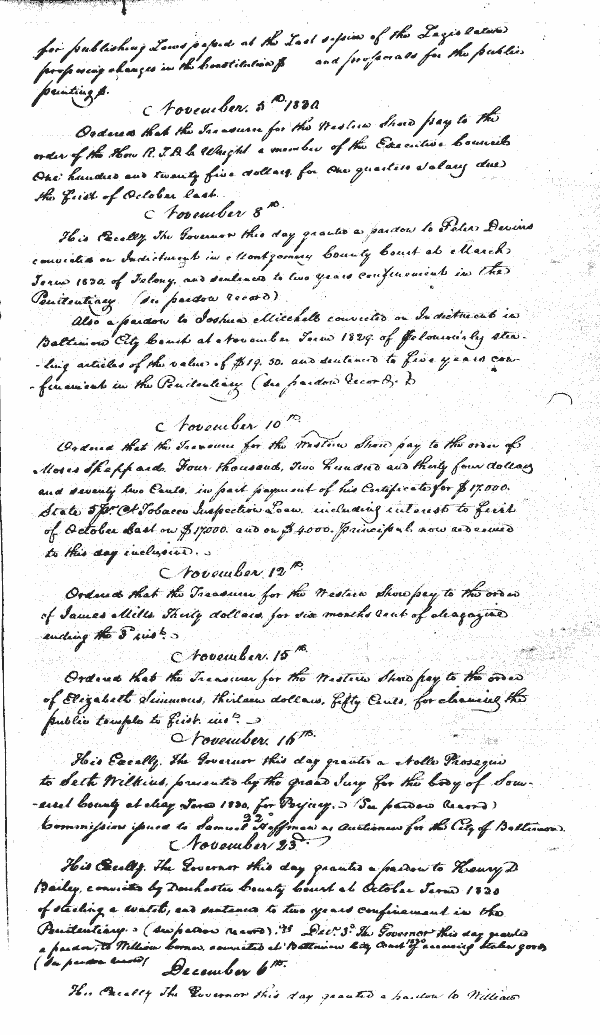 for publishing Laws passed at the Last session of the Legislature
proposing changes in the Constitution and proposals for the public
printing.
November 5th 1830
Ordered that the Treasurer for the Western Shore pay to the
order of the Hon R. T. D. Wright a member of the Executive Council
One hundred and twenty five dollars for One quarters salary due
the first of October last
November 8th
His Excelly The Governor this day granted a pardon to Peter Devins
convicted on Indictment in Montgomery County Court at March
Term 1830, of Felony, and sentenced to two years confinement in the
Penitentiary (see pardon record)
Also a pardon to Joshua Mitchell convicted on Indictment in
Baltimore City Court at November Term 1829, of feloniously stea-
-ling articles of the value of $19.50. and sentenced to five years con-
-finement in the Penitentiary (see pardon record)
November 10th
Ordered that the Treasurer for the Western Shore pay to the order of
Moses Sheppard, Four thousand, Two hundred and thirty four dollars
and seventy two Cents, in part payment of his Certificate for $17000.
State 5 pr Ct Tobacco Inspection Loan, including interest to first
of October Last on $17000. and on $4000. Principal now redeemed
to this day inclusive.
November 12th
Ordered that the Treasurer for the Western Shore pay to the order
of James Mills Thirty dollars, for six months rent of Magazine
ending the inst.
November 15th
Ordered that the Treasurer for the Western Shore pay to the order
of Elizabeth Simmons, thirteen dollars, fifty Cents, for cleaning the
public temple to first inst.
November 16th
His Excelly. The Governor this day granted a Nolle Prosequi
to Seth Wilkins, presented by the grand Jury for the body of Som-
-erset County at May Term 1830, for Perjury. (See pardon Record)
22d
Commission issued to Samuel Hoffman as Auctioneer for the City of Baltimore.
November 23d
His Excelly. The Governor this day granted a pardon to Henry D
Bailey, convicted by Dorchester County Court at October Term 1830
of stealing a watch, and sentenced to two years confinement in the
Penitentiary. (see pardon record). Decr 3d The Governor this day granted
a pardon, to William convicted at Baltimore City Court 1830 of receiving stolen goods
(See pardon record)
December 6th
His Excelly The Governor this day granted a pardon to William